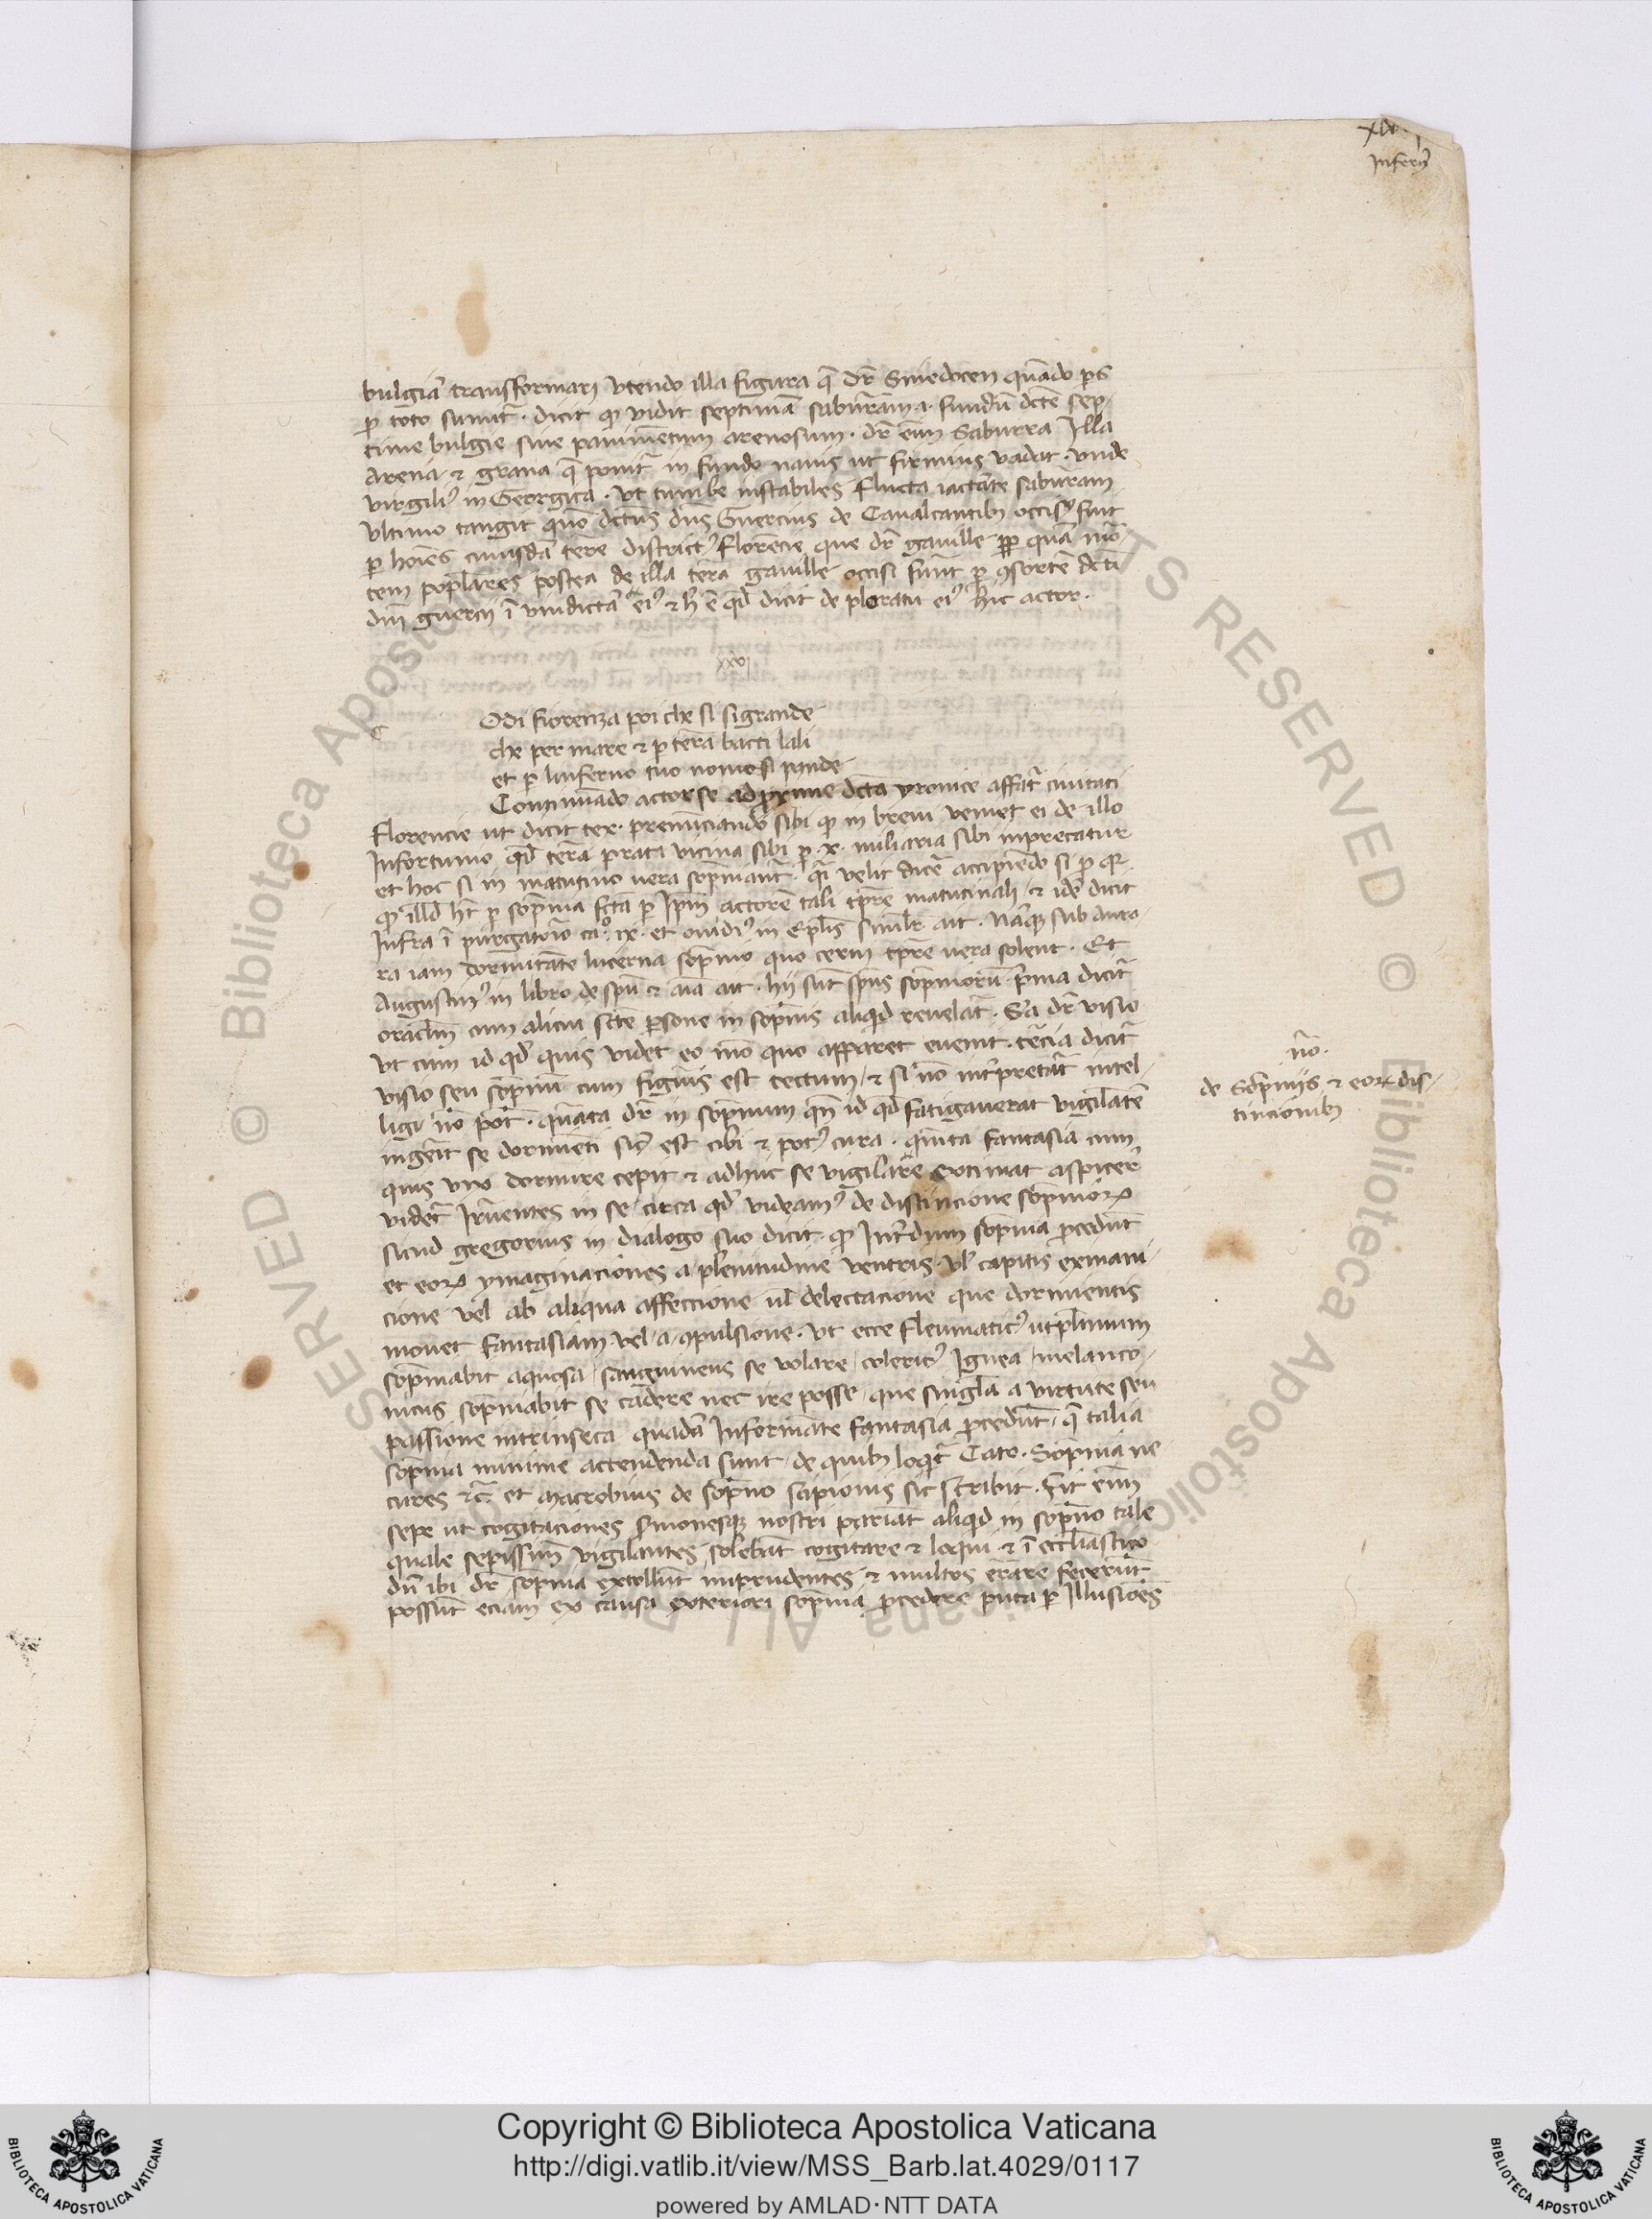 Infernꝰ
bulgiā transformari vtendo illa figura q̄ dr̄ Sinedocen quādo ꝑs
ꝑ toto sumit᷑ . dicit ꝙ vidit septimā saburram .i. fundū dc̄te sep-
time bulgie siue pauimētum arenosum . dr̄ eīm Saburra Illa
Arena ⁊ graua q̄ ponit᷑ in fundo nauis ut firmius vadat . vnde
virgiliꝰ in Georgica . Vt cumbe instabiles fluctu iactāte saburram
vltimo tangit quō dc̄tus dn̄s Guercius de Caualcantibꝫ occisꝰ fuit
ꝑ hoīes cuiusdā terre districtꝰ florēcie que dr̄ gauille ꝓꝑ quā mor-
tem poplares postea de illa terra gauille occisi fūnt ꝑ ꝯsortē dc̄ti
dn̄i guercij ī vindictā eiꝰ ⁊ h̄ ē qd̄ dicit de ploratu eiꝰ hic actor .
xxvj
Odi fiorenza poi che si sigrande
che per mare ⁊ ꝑ terra batti lali
et ꝑ linferno tuo nome si spande
Continuādo actor se ad ꝓxime dc̄ta yronice affat᷑ ciuitati
florencie ut dicit tex . prenūciando sibi ꝙ in breui veniet ei de illo
Infortunio qd̄ terra prata vicina sibi ꝑ .x. miliaria sibi inprecatur
et hoc si in matutino uera sopniant᷑ . q̄ velit dicē accipiēdo si ꝑ qꝛ
ꝙ illd̄ h̄t ꝑ sopnia fc̄ta ꝑ Ip̄m actorē tali tp̄re matutinali ⁊ idē dicit
Infra ī purgatorio cāº ix . et ouidiꝰ in Ep̄lis simil̄r ait . Nāqꝫ sub auro-
ra iam dormitāte lucerna sopnio quo cerni tp̄re uera solent . Et
Augustinꝰ in libro de spū ⁊ aīa ait . hij sūt spēs sopniorū . prima dicit᷑
oraclm̄ cum alicui sc̄te ꝑsone in sopnis aliqd̄ reuelat᷑ . Sc̄da dr̄ visio
vt cum id qd̄ quis videt eo mō quo apparet euenit . tercia dicit᷑
visio seu sopniū cum figuris est tectum ⁊ si nō int᷑pretat᷑ intel-
ligi nō pōt . quarta dr̄ in sopnium qn̄ id qd̄ fatigauerat vigilātē
ingerit se dormiēti sic̄ est cibi ⁊ potꝰ cura . quinta fantasia cum
quis vix dormire cepit ⁊ adhuc se vigilare extimat aspicer̄
videt᷑ Irruentes in se . circa qd̄ videamꝰ de distincione sopnioꝝ
sicud gregorius in dialogo suo dicit ꝙ Int᷑dum sopnia ꝓcedūt
et eoꝝ ymaginaciones a plenitudine ventris . vl̄ capitis exinani-
cione vel ab aliqua affeccione ul̄ delectacione que dormientis
mouet fantasiam vel a ꝯpulsione . vt ecce fleumaticꝰ ut plimum
sopniabit aquosa / sanguineus se volare / colericꝰ Ignea / melanco-
nicus sopniabit se cadere nec ire posse / que singl̄a a virtute seu
passione intrinseca quadā Informāte fantasiā ꝓcedūt . q̄ talia
sopnia minime actendenda sunt . de quibꝫ loqit᷑ Cato . Sopnia ne
cures ⁊c̄ . et Macrobius de sopno scipionis sic scribit . Fit eīm
sepe ut cogitaciones sermonesqꝫ nostri pariāt aliqd̄ in sopno tale
quale sepissim̄ vigilantes solebāt cogitare ⁊ loqui ⁊ ī eccl̄iastico
dū ibi dr̄ sopnia extollūt inprudentes ⁊ multos errare fecerūt
possūt eciam ex causa exteriori sopnia ꝓcedere puta ꝑ Illusiōes
nō .
de Sopniis ⁊ eoꝝ dis-
tincionibꝫ
© Biblioteca Apostolica Vaticana ALL RIGHTS RESERVED
Copyright © Biblioteca Apostolica Vaticana
http://digi.vatlib.it/view/MSS_Barb.lat.4029/0117
powered by AMLAD·NTT DATA
BIBLIOTECA APOSTOLICA VATICANA
BIBLIOTECA APOSTOLICA VATICANA